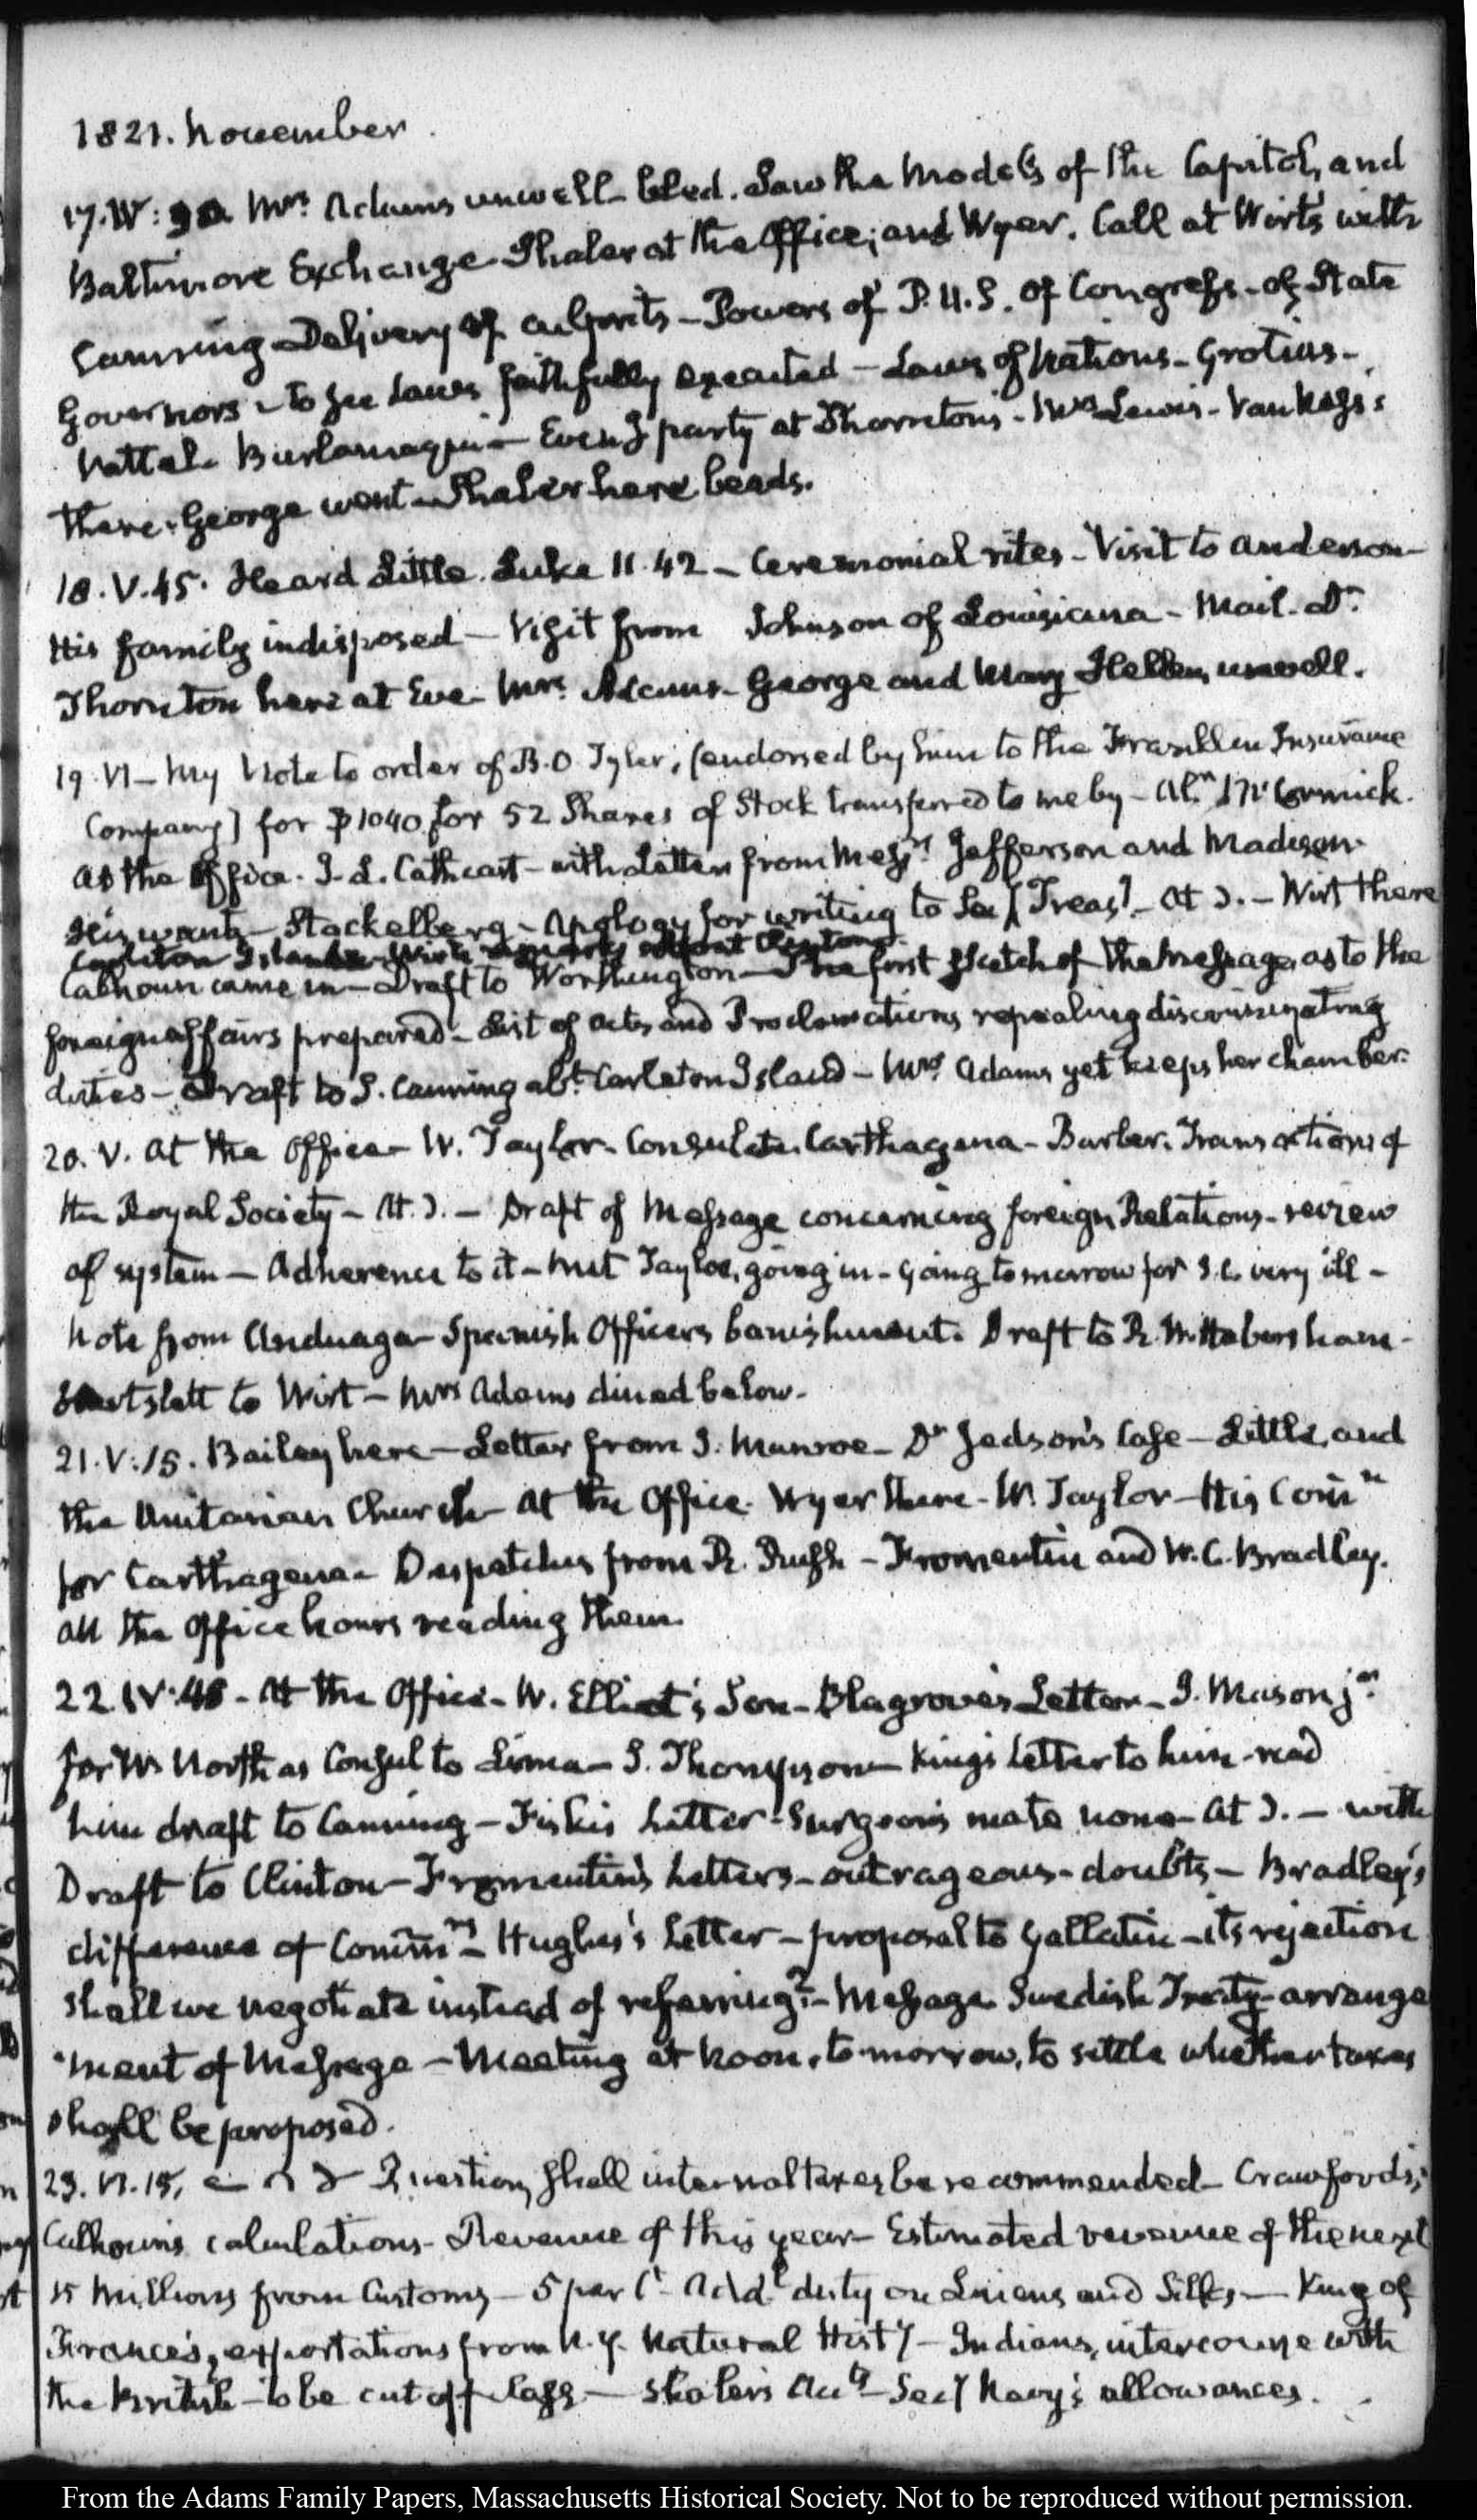 1821. November.
17. V: 30. Mrs. Adams unwell bled. Saw the Models of the Capitol, and
Baltimore Exchange. Shaler at the Office; and Wyer. Call at Wirt's with
Canning Delivery of culprits - Powers of P. U. S. of Congress - of State
Governors - to see Laws faithfully executed - Laws of Nations - Grotius -
Vattel - Burlamaqui - Eveng. party at Thornton's - Mrs. Lewis - Van Ness's
there. George went - Shaler here beads.
18. V. 45. Heard Little. Luke 11. 42 - Ceremonial rites - Visit to Anderson -
His family indisposed - Visit from Johnson of Louisiana - Mail. Dr.
Thornton here at Eve. Mrs. Adams - George and Mary Hellen, unwell.
19. VI - My Note to order of B. O. Tyler, (endorsed by him to the Franklin Insurance
Company) for $1040 for 52 Shares of Stock transferred to me by - Alr. McCormick.
At the Office. J. L. Cathcart - with Letters from Messrs. Jefferson and Madison
His wants - Stackelberg - Apology for writing to Secy Treasy. - At P. - Wirt there
Carleton Islands - Wirt's remarks about
Calhoun came in - Draft to Worthington - The first sketch of the Message, as to the
foreign affairs prepared - List of acts and Proclamations repealing discriminating
duties - Draft to S. Canning abt. Carleton Island - Mrs. Adams yet keeps her chamber.
20. V. At the Office - W. Taylor. Consulate Carthagena - Barber. Transactions of
the Royal Society - At P. - Draft of Message concerning foreign Relations - review
of system - Adherence to it - Met Tayloe, going in - going tomorrow for S. C. very ill -
Note from Anduaga - Spanish Officers banishment. Draft to R. W. Habersham -
Sent slatt to Wirt - Mrs Adams dined below -
21. V: 15. Bailey here - Letter from J. Munroe - Dr Jackson's Case - Little, and
the Unitarian Church - At the Office. Wyer there - W. Taylor - His Comn
for Carthagena - Despatches from R. Rush - Fromentin and W. C. Bradley.
All the Office hours reading them.
22. IV. 45 - At the Office - W. Elliot's Son - Blagrove's Letter - J. Mason jr.
for W. North as Consul to Lima - S. Thompson - King's Letter to him - read
him draft to Canning - Fiske's Letter - Surgeon's mate none - At P. - with
Draft to Clinton - Fromentin's Letters - outrageous - doubts - Bradley's
difference of Commrs. - Hughes's Letter - proposal to Gallatin - its rejection
shall we negotiate instead of referring? - Message Swedish Treaty - arrange
ment of Message - Meeting at Noon, to-morrow, to settle whether taxes
shall be proposed.
23. VI. 15, Question, shall internal taxes be recommended - Crawford's,
Calhoun's calculations - Revenue of this year - Estimated revenue of the next
15 Millions from Customs - 5 per Ct. Addl. duty on Linens and Silks, - King of
France's, exportations from N. Y. Natural Histy - Indians, intercourse with
the British - to be cut off - Cass - Shaler's Acct - Secy Navy's allowances.
From the Adams Family Papers, Massachusetts Historical Society. Not to be reproduced without permission.